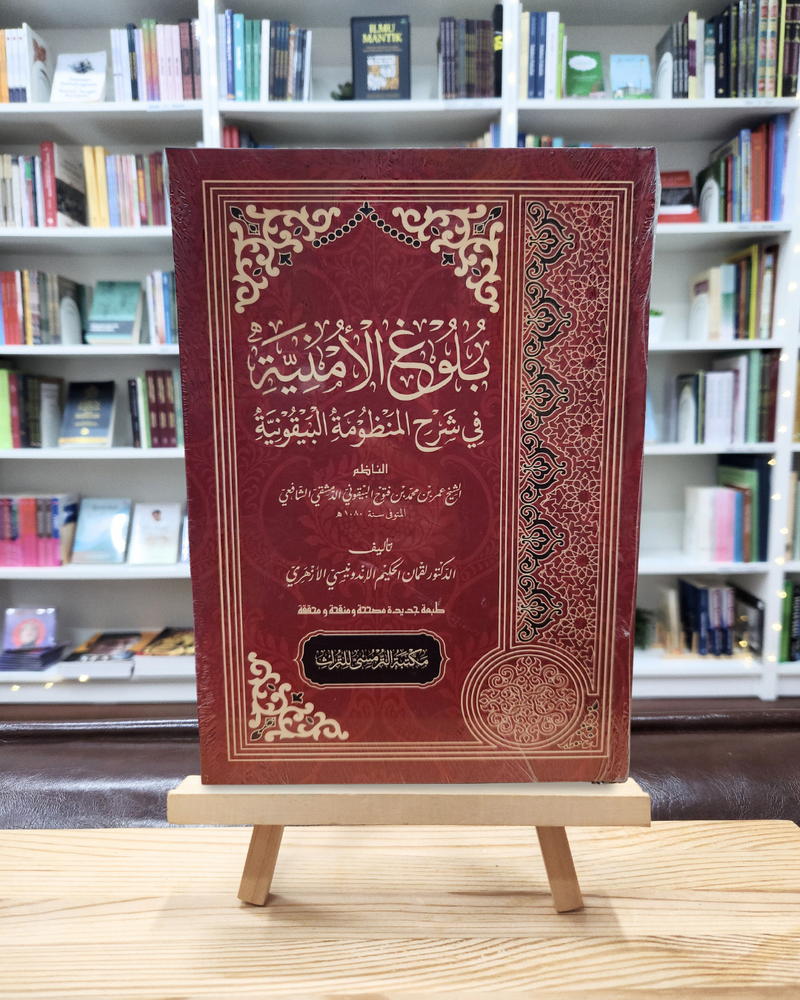 ILMU
MANTIK
بُلُوغُ الْأُمْنِيَّةِ
فِي شَرْحِ الْمَنْظُومَةِ الْبَيْقُونِيَّةِ
الناظم
الشيخ عمر بن محمد بن فتوح البيقوني الدمشقي الشافعي
المتوفى سنة ١٠٨٠ هـ
تأليف
الدكتور لقمان الحكيم الإندونيسي الأزهري
طبعة جديدة مصححة ومنقحة ومحققة
مكتبة الترمسي للتراث